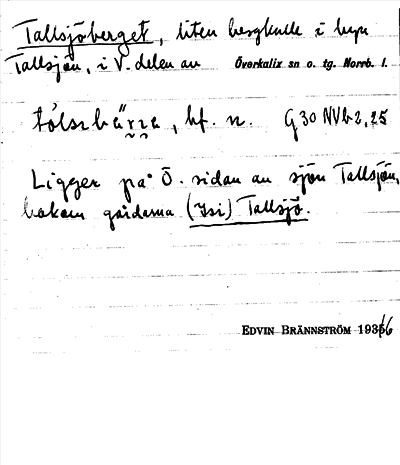 Tallsjöberget, liten bergkulle i byn
Tallsjön, i V. delen av Överkalix sn o. tg. Norrb. l.
tòlsɩbär̰r̰ɛ, bf. n. G30 NVb2,25
Ligger på Ö. sidan av sjön Tallsjön,
bakom gårdarna (Isi) Tallsjö.
EDVIN BRÄNNSTRÖM 1936